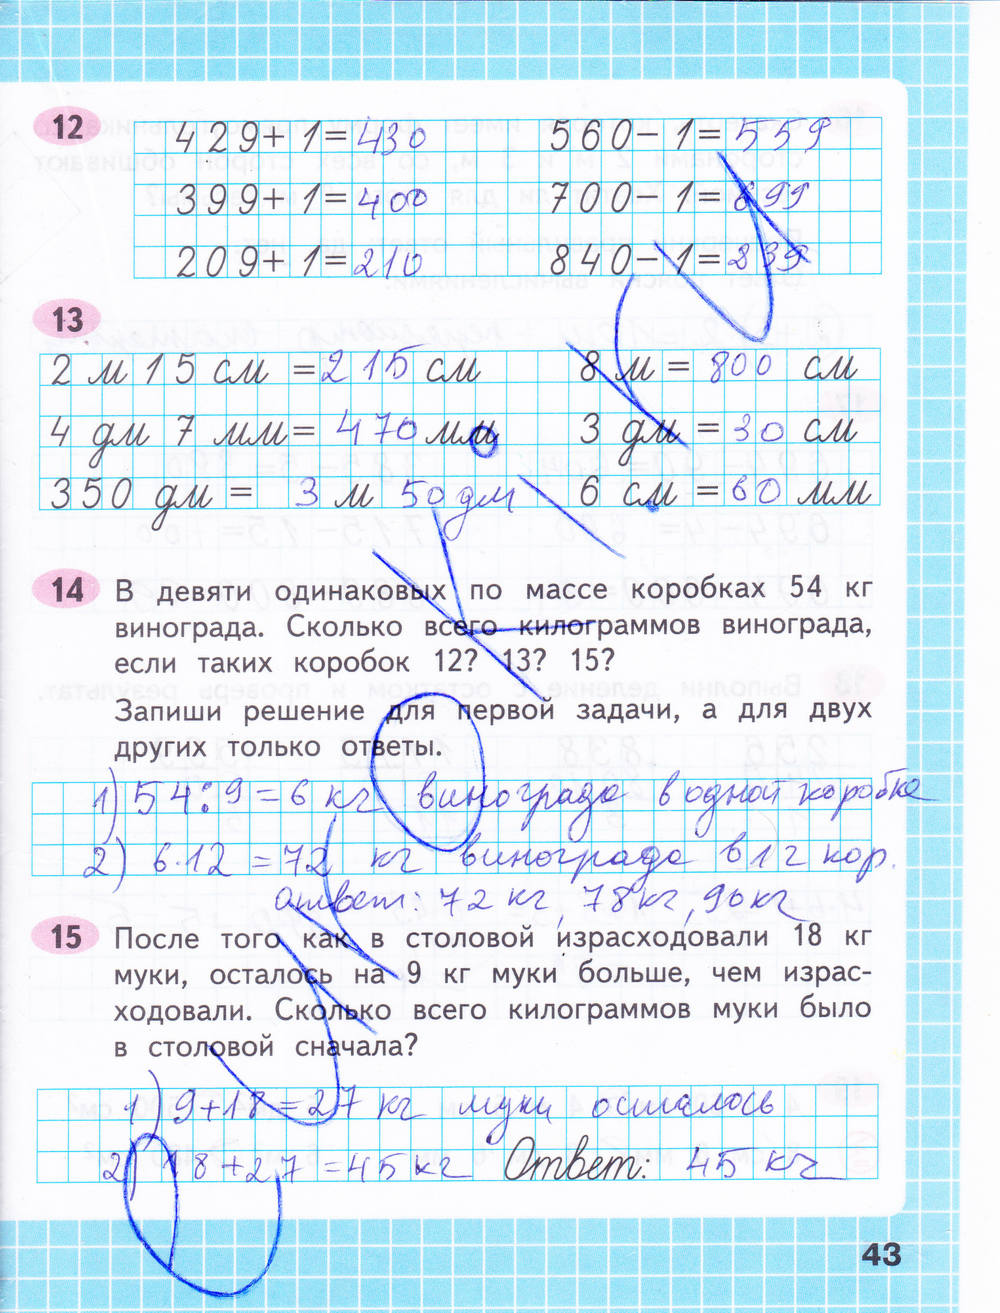 12
429+1=430 560-1=559
399+1=400 700-1=699
209+1=210 840-1=839
13
2 м 15 см =215 см 8 м = 800 см
4 дм 7 мм= 470 мм 3 дм =30 см
350 дм = 3 м 50 дм 6 см =60 мм
14 В девяти одинаковых по массе коробках 54 кг
винограда. Сколько всего килограммов винограда,
если таких коробок 12? 13? 15?
Запиши решение для первой задачи, а для двух
других только ответы.
1) 54:9=6 кг винограда в одной коробке
2) 6·12 =72 кг винограда в 12 кор.
ответ: 72 кг, 78кг, 90кг
15 После того как в столовой израсходовали 18 кг
муки, осталось на 9 кг муки больше, чем израс-
ходовали. Сколько всего килограммов муки было
в столовой сначала?
1) 9+18=27 кг муки осталось
2) 18+27=45кг Ответ: 45 кг
43